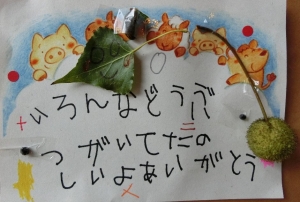 いろんなどうぶ
つがいてたの
しいよありがとう